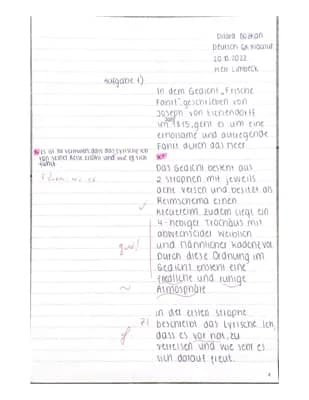 Dilara Bozkan
Deutsch GK Klausur
20.10.2022
Herr Limbeck
Aufgabe 1)
In dem Gedicht „Frische
Fahrt", geschrieben von
Joseph von Eichendorff
im 1815, geht es um eine
und aufregende
Fahrt durch das Meer.
Es ist zu vermuten, dass das lyrische Ich
von seiner Reise erzählt und wie es sich
fühlt
Das Gedicht besteht aus
2 Strophen mit jeweils
acht Versen und besitzt als
Reimschema einen
Kreuzreim. Zudem liegt ein
4-hebiger Trochäus mit
weiblichen
und männlicher Kadenz vor.
Durch diese Ordnung im
Gedicht, ensteht eine
friedliche und ruhige
Atmosphäre
gut!
In der ersten Strophe
beschreibt das lyrische Ich,
dass es vor hat, zu
verreisen und wie sehr es
sich darauf freut.